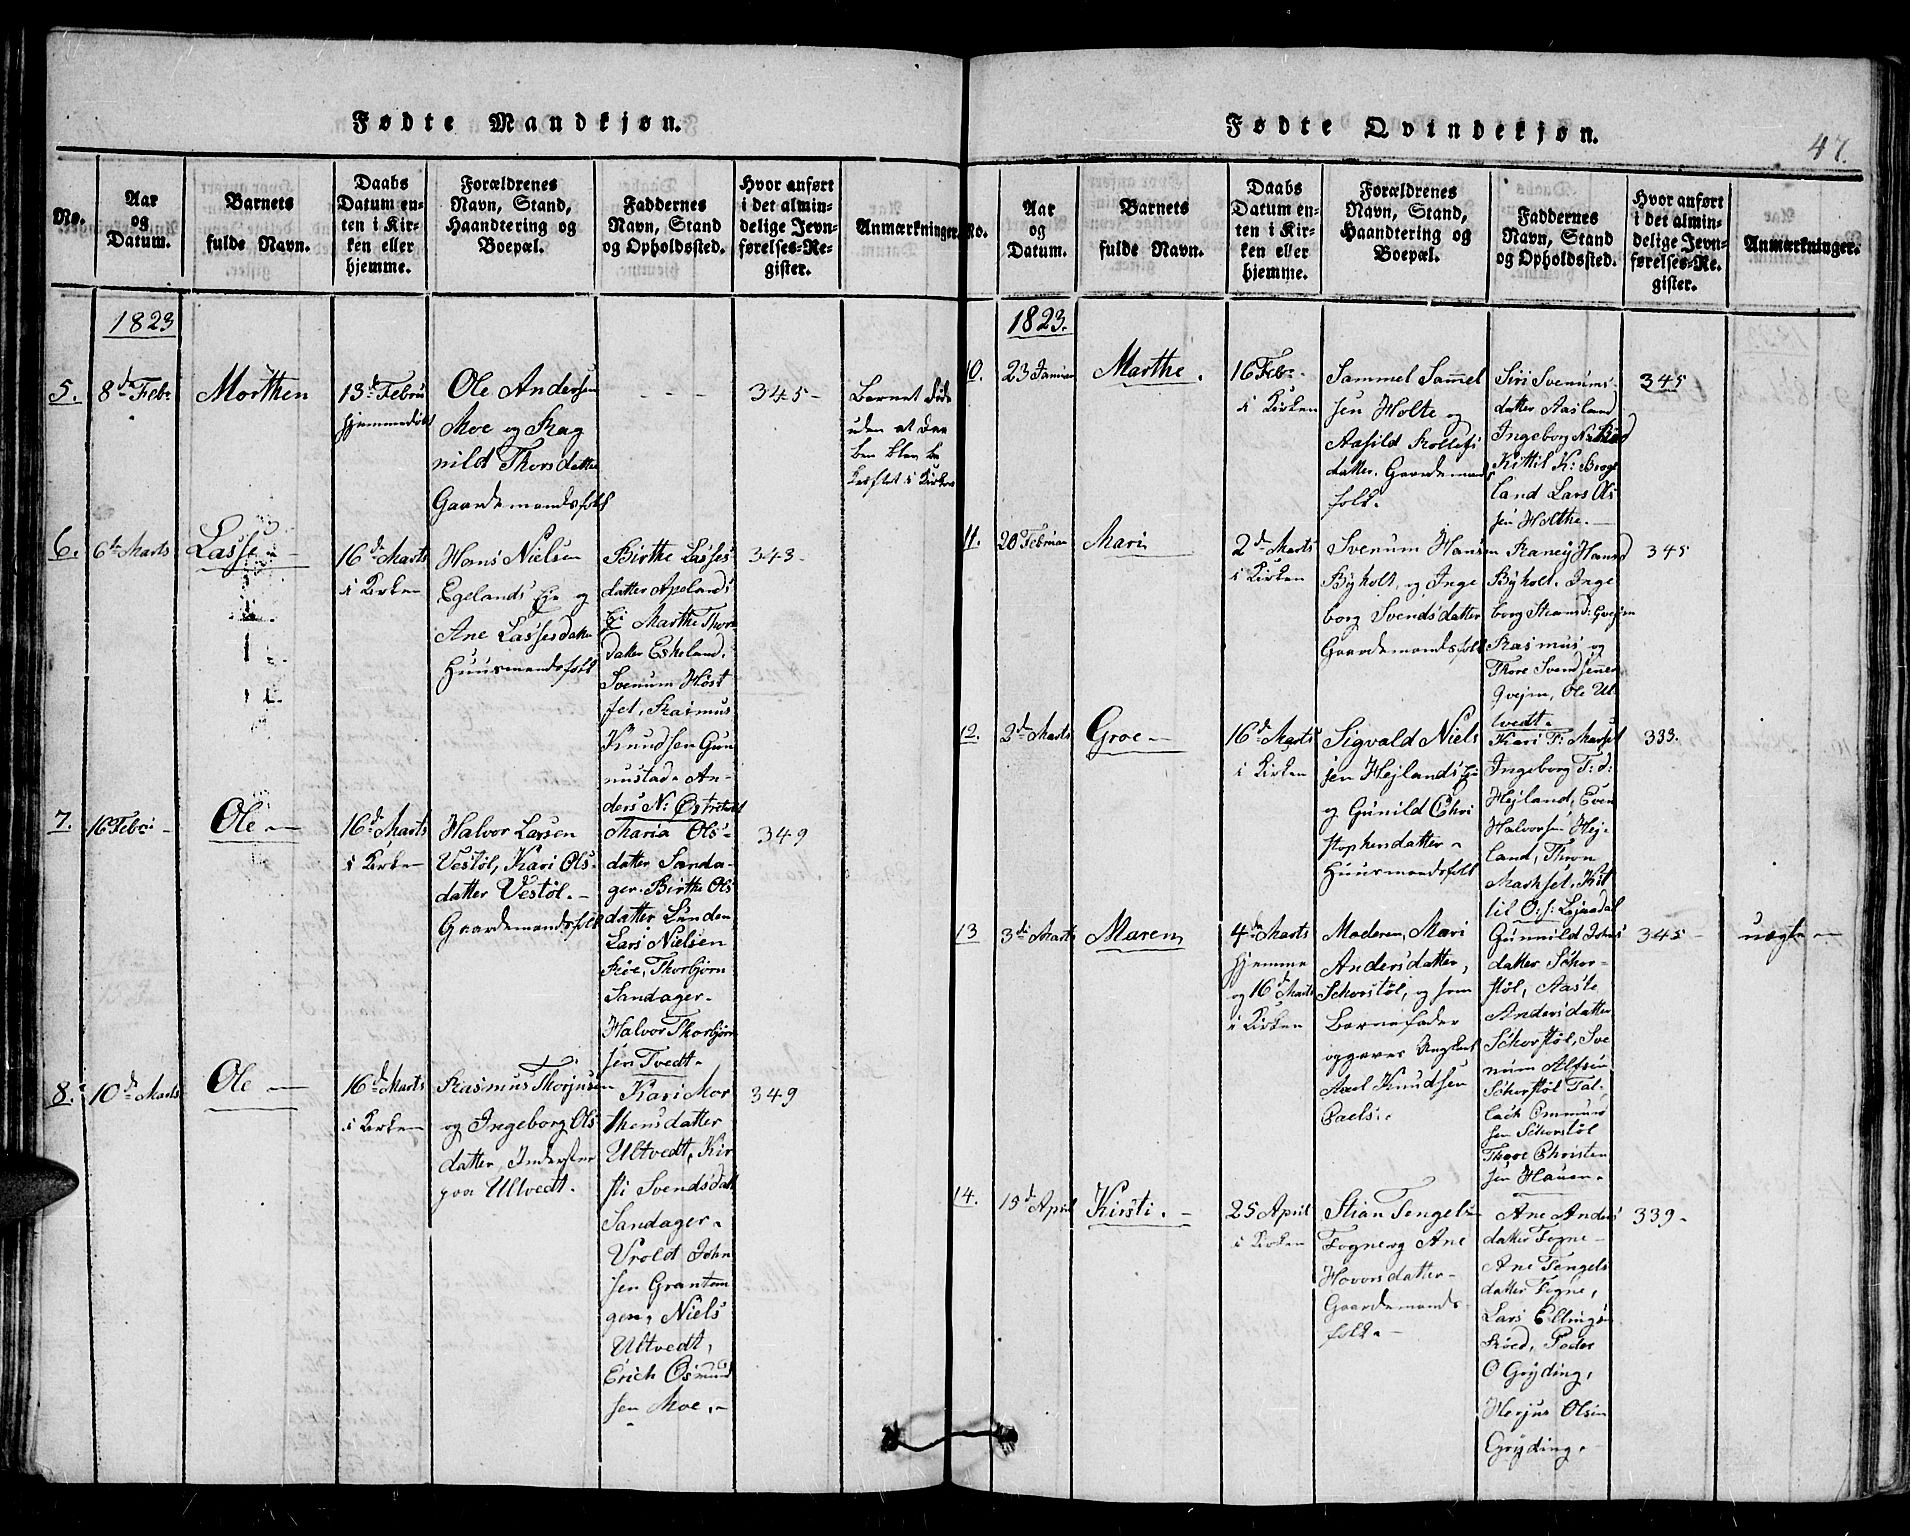 Fødte Mandkjøn.
No.
Aar
og
Datum.
Barnets
fulde Navn.
Daabs
Datum en-
ten i Kir-
ken eller
hjemme.
Forældrenes
Navn, Stand,
Haandtering og
Boepæl.
Faddernes
Navn, Stand
og Opholdssted.
Hvor anført
i det almin-
delige Jevn-
førelses-Re-
gister.
Anmærkninger.
1823
5.
8de Febr
Morthen
13de Febru
hjemmedøbt
Ole Andersen
Moe og Rag
nild Thorsdatter
Gaardemandsfolk
- - -
345 -
Barnet døde
uden at
i Kirken
6.
6te Marts
Lasse -
16de Marts
i Kirken
Hans Nielsen
Egelands Eje og
Ane Lassesdatter
Huusmandsfolk
Birthe Lasses
datter Apelands
Ej Marthe Thors
datter Eskeland.
Svenum Høst
føl, Rasmus
Knudsen Gun
nustad. An-
ders N: Østreholt
343 -
7.
16 Febr -
Ole -
16de Marts
i Kirken
Halvor Larsen
Vestøl, Kari Ols-
datter Vestøl. -
Gaardemandsfolk
Maria Ols-
datter Sanda-
ger. Birthe Ols
datter Lunden
Lars Nielsen
Røe, Thorbjørn
Sandager.
Halvor Thorbjørn
sen Tvedt.
349
8.
10de Marts
Ole -
16de Marts
i Kirken
Rasmus Thorjusen
og Ingeborg Ols
datter, Inderster
paa Ultvedt.
Kari Mor
thensdatter
Ultvedt, Kir
sti Svendsdatt
Sandager.
Vrold John
sen Grantom
gen, Niels
Ultvedt,
Erich Osmund
sen Moe. -
349
Fødte Qvindekjøn.
47.
No.
Aar
og
Datum.
Barnets
fulde Navn.
Daabs
Datum en-
ten i Kir-
ken eller
hjemme.
Forældrenes
Navn, Stand,
Haandtering og
Boepæl.
Faddernes
Navn, Stand
og Opholdssted.
Hvor anført
i det almin-
delige Jevn-
førelses-Re-
gister.
Anmærkninger.
1823.
10.
23 Januar
Marthe.
16 Febr-
i Kirken
Sammel Samel
sen Holte og
Aasild Rollefs
datter. Gaardemands
folk.
Siri Svenums-
datter Aasland
Ingeborg
Kittil K: Broge
land Lars Ols
sen Holthe. -
345
11.
20 Februar
Mari
2de Marts
i Kirken
Svenum Hansen
Byholt, og Inge
borg Svendsdatter
Gaardemandsfolk
Raney Hansd
Byholt. Inge
borg Stramd: Gvejen
Rasmus og
Thore Svendsener
Qvejm, Ole Ul
tvedt.
345
12.
2de Marts
Groe -
16de Marts
i Kirken
Sigvald Niels
sen Hejlands Eje
og Gunild Chri
stophersdatter -
Huusmandsfolk
Kari T: Marhset
Ingeborg T: d:
Hejland, Even
Halvorsen Hej-
land, Thron
Marhset, Kit
til O: s: Lejaadal
333.
13
3de Marts
Maren
4de Marts
hjemme
og 16de Marts
i Kirken
Moderen, Mari
Andersdatter,
Schorstøl, og som
Barnefader
opgaves Ungkarl
Axel Knudsen
Gunnild Johns
datter Schor-
støl, Aaste
Andersdatter
Schorstøl, Sve
num Alfsen
Schorstøl Tal-
lach Ommund
sen Schorstøl
Thore Christen
sen Hauen.
345 -
uægte -
14.
15de April
Kirsti. -
25 April
i Kirken
Stian Tengels-
Fogne og Ane
Hovorsdatter-
Gaardemands
folk. -
Ane Anders
datter Fogne -
Ane Tengels
datter Fogne,
Lars Ellingsøn
Røed, Peder
O Gryding,
Herjus Olsen
Gryding. -
339 -